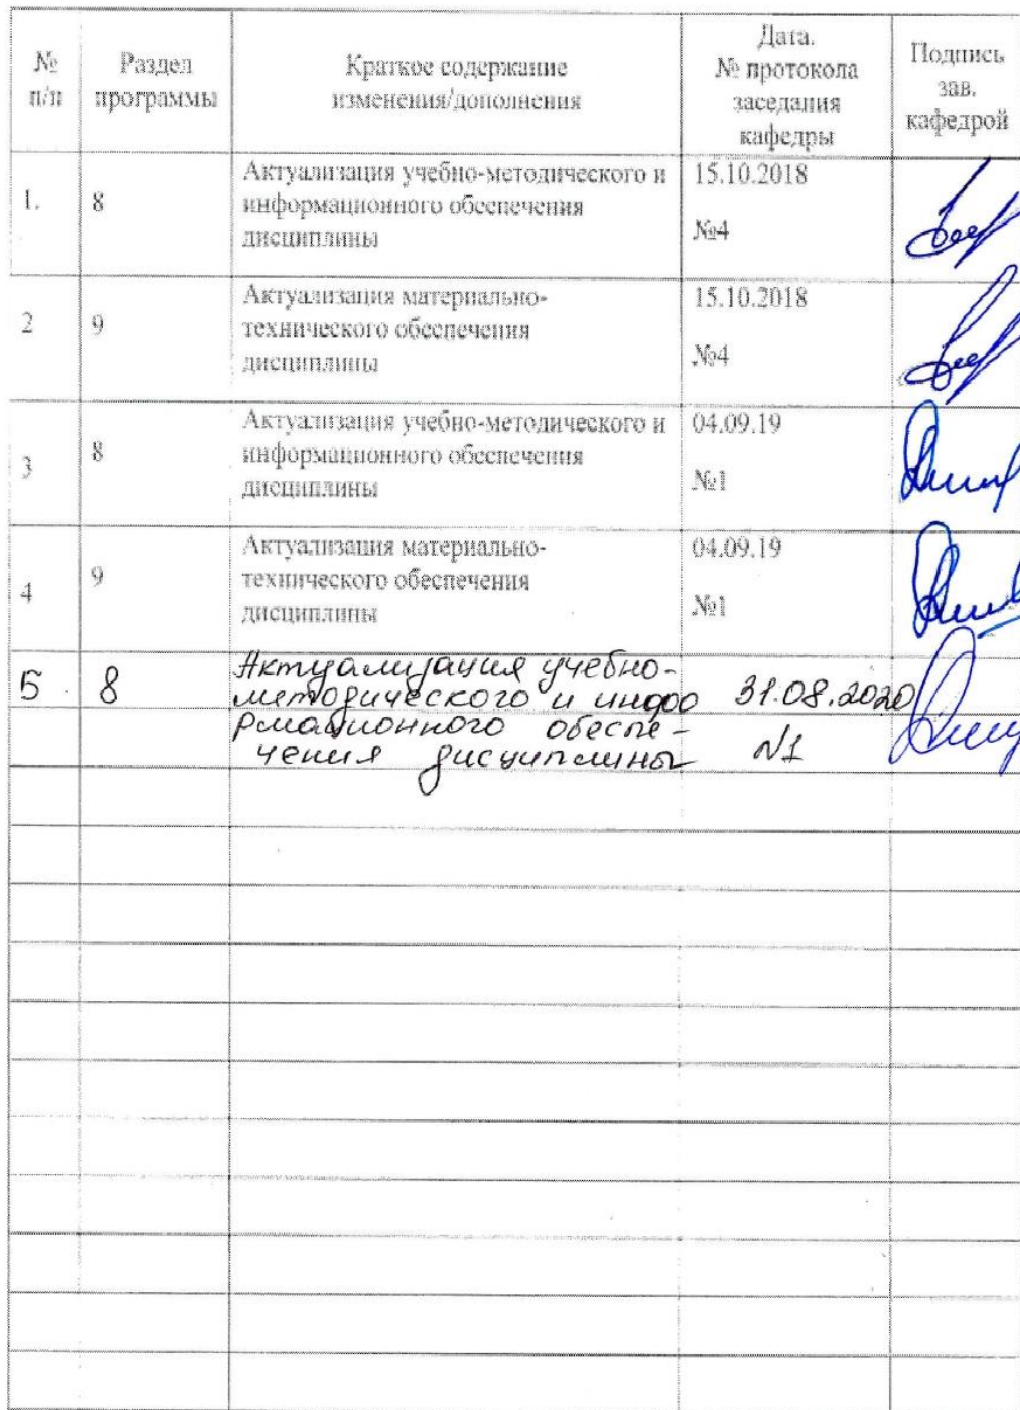 № п/п
Раздел программы
Краткое содержание
изменения/дополнения
Дата.
№ протокола
заседания
кафедры
Подпись
зав.
кафедрой
1.
8
Актуализация учебно-методического и
информационного обеспечения
дисциплины
15.10.2018
№4
2
9
Актуализация материально-
технического обеспечения
дисциплины
15.10.2018
№4
3
8
Актуализация учебно-методического и
информационного обеспечения
дисциплины
04.09.19
№1
4
9
Актуализация материально-
технического обеспечения
дисциплины
04.09.19
№1
5.
8
Актуализация учебно-
методического и инфо
рмационного обеспе-
чения дисциплины
31.08.2020
№1